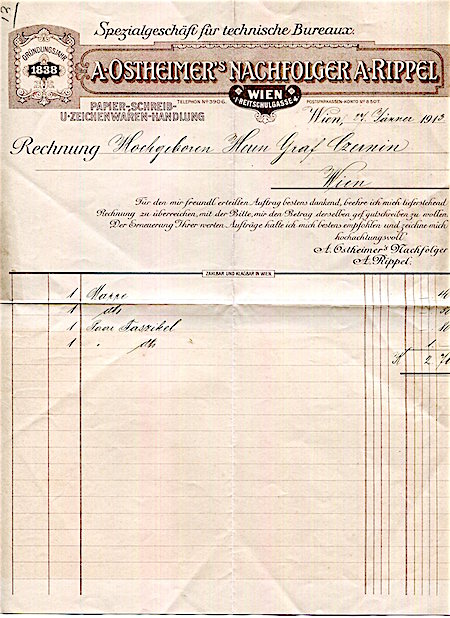 Spezialgeschäft für technische Bureaux.
GRÜNDUNGSJAHR
1838
A. OSTHEIMER'S NACHFOLGER A. RIPPEL
WIEN
I. REITSCHULGASSE 4
PAPIER-, SCHREIB-
U. ZEICHENWAREN-HANDLUNG
TELEPHON Nº
POSTSPARKASSEN-KONTO Nº
Wien, Jänner 1913
Rechnung Hochgeboren Herrn Graf Czernin
Wien
Für den mir freundl. erteilten Auftrag bestens dankend, beehre ich mich tieferstehend
Rechnung zu überreichen, mit der Bitte, mir den Betrag derselben gef. gutschreiben zu wollen.
Der Erneuerung Ihrer werten Aufträge halte ich mich bestens empfohlen und zeichne mich
hochachtungsvoll
A. Ostheimer's Nachfolger
A. Rippel.
ZAHLBAR UND KLAGBAR IN WIEN.
1 Mappe
1 dto
1 Faszikel
1 " dto 1
K 2 70